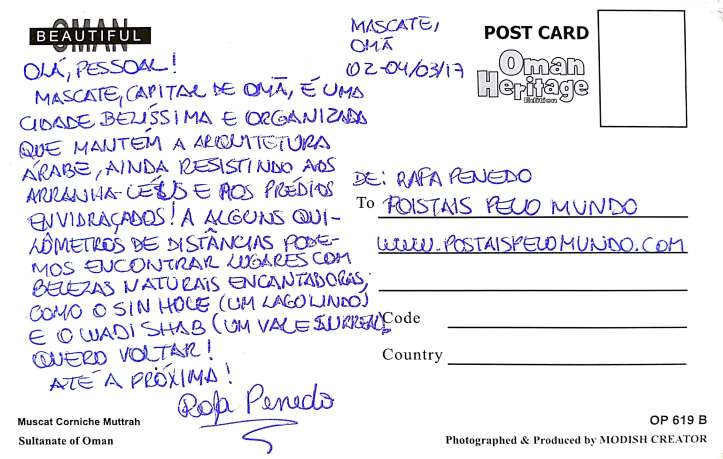 OMAN
BEAUTIFUL
OLÁ, PESSOAL!
MASCATE, CAPITAL DE OMÃ, É UMA
CIDADE BELÍSSIMA E ORGANIZADA
QUE MANTÉM A ARQUITETURA
ÁRABE, AINDA RESISTINDO AOS
ARRANHA-CÉUS E AOS PRÉDIOS
ENVIDRAÇADOS! A ALGUNS QUI-
LÔMETROS DE DISTÂNCIAS PODE-
MOS ENCONTRAR LUGARES COM
BELEZAS NATURAIS ENCANTADORAS,
COMO O SIN HOLE (UM LAGO LINDO)
E O WADI SHAB (UM VALE SURREAL).
QUERO VOLTAR!
ATÉ A PRÓXIMA!
Rafa Penedo
Muscat Corniche Muttrah
Sultanate of Oman
MASCATE,
OMÃ
02-04/03/17
POST CARD
Oman
Heritage
Edition
DE: RAFA PENEDO
To POISTAIS PELO MUNDO
WWW.POSTAISPELOMUNDO.COM
Code
Country
OP 619 B
Photographed & Produced by MODISH CREATOR